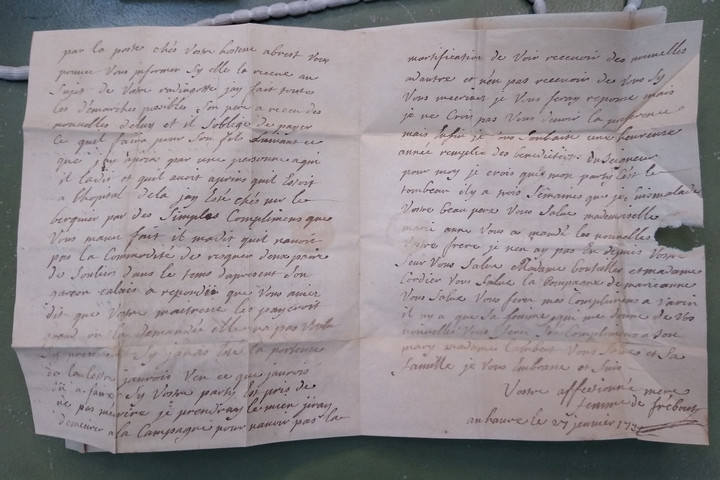 par la poste chés votre hotesse abrest vous
pouvez vous informer sy elle la recue au
sujet de votre radingotte jay fait toutte
les démarches posibles son pere a receu des
nouvelles deluy et il soblige de payer
ce quil faira pour son fils suivant ce
que jay apris par une personne aqui
il ladit et quil avoit apris quil Estoit
a lhopital dela jay Esté chés sur le
berquier par des simples Complimens que
vous mavez fait il madit quil navoit
pas la Commodité de risquer une paire
de souliers dans le tems dapresent son
garson calais a repondu que vous aviez
dit que votre maitresse les payeroit
quand on la demandée elle na pas voulu
sy javais Esté la porteuse
de la lettre jaurois veu ce que jaurois
a faire sy votre party Est pris de
ne pas mecrire je prendray le mien jiray
demeurer a la Campagne pour navoir pas la
mortification de voir recevoir des nouvelles
adautre et nen pas recevoir de vous sy
vous mecrivez je vous feray reponse mais
je ne Crois pas vous devoir la preference
mais Enfin je vous souhaite une heureuse
année remplie des benedictions du seigneur
pour moy je crois que mon party Est le
tombeau il y a trois semaines que je suis malade
votre beau pere vous salue mademoiselle
marie anne vous a mandé les nouvelles
votre frere je nen ay pas Eu depuis votre
seur vous salue Madame et madame
Cordier vous salue la Compagne de marieanne
vous salue vous ferez mes Complimens a varin
il ny a que sa femme qui me donne de vos
nouvelles vous ferez Complimens a son
mary madame Lambert vous salue et sa
famille je vous Embrasse et suis
Votre affectionné mere
femme de frébourg
au havre le 27 janvier